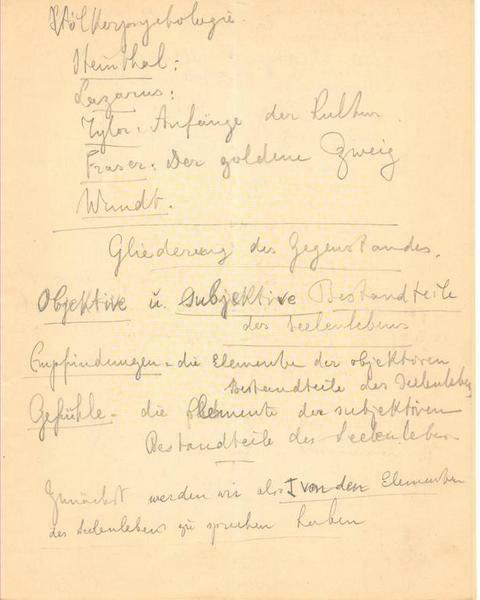 Völkerpsychologie.
Steinthal:
Lazarus:
Tylor: Anfänge der Kultur.
Fraser: Der goldene Zweig
Wundt.
Gliederung des Gegenstandes.
Objektive u. subjektive Bestandteile
des Seelenlebens
Empfindungen = die Elemente der objektiven
Bestandteile des Seelenlebens
Gefühle - die Elemente der subjektiven
Bestandteile des Seelenleben
Zunächst werden wir also I von den Elementen
des Seelenlebens zu sprechen haben